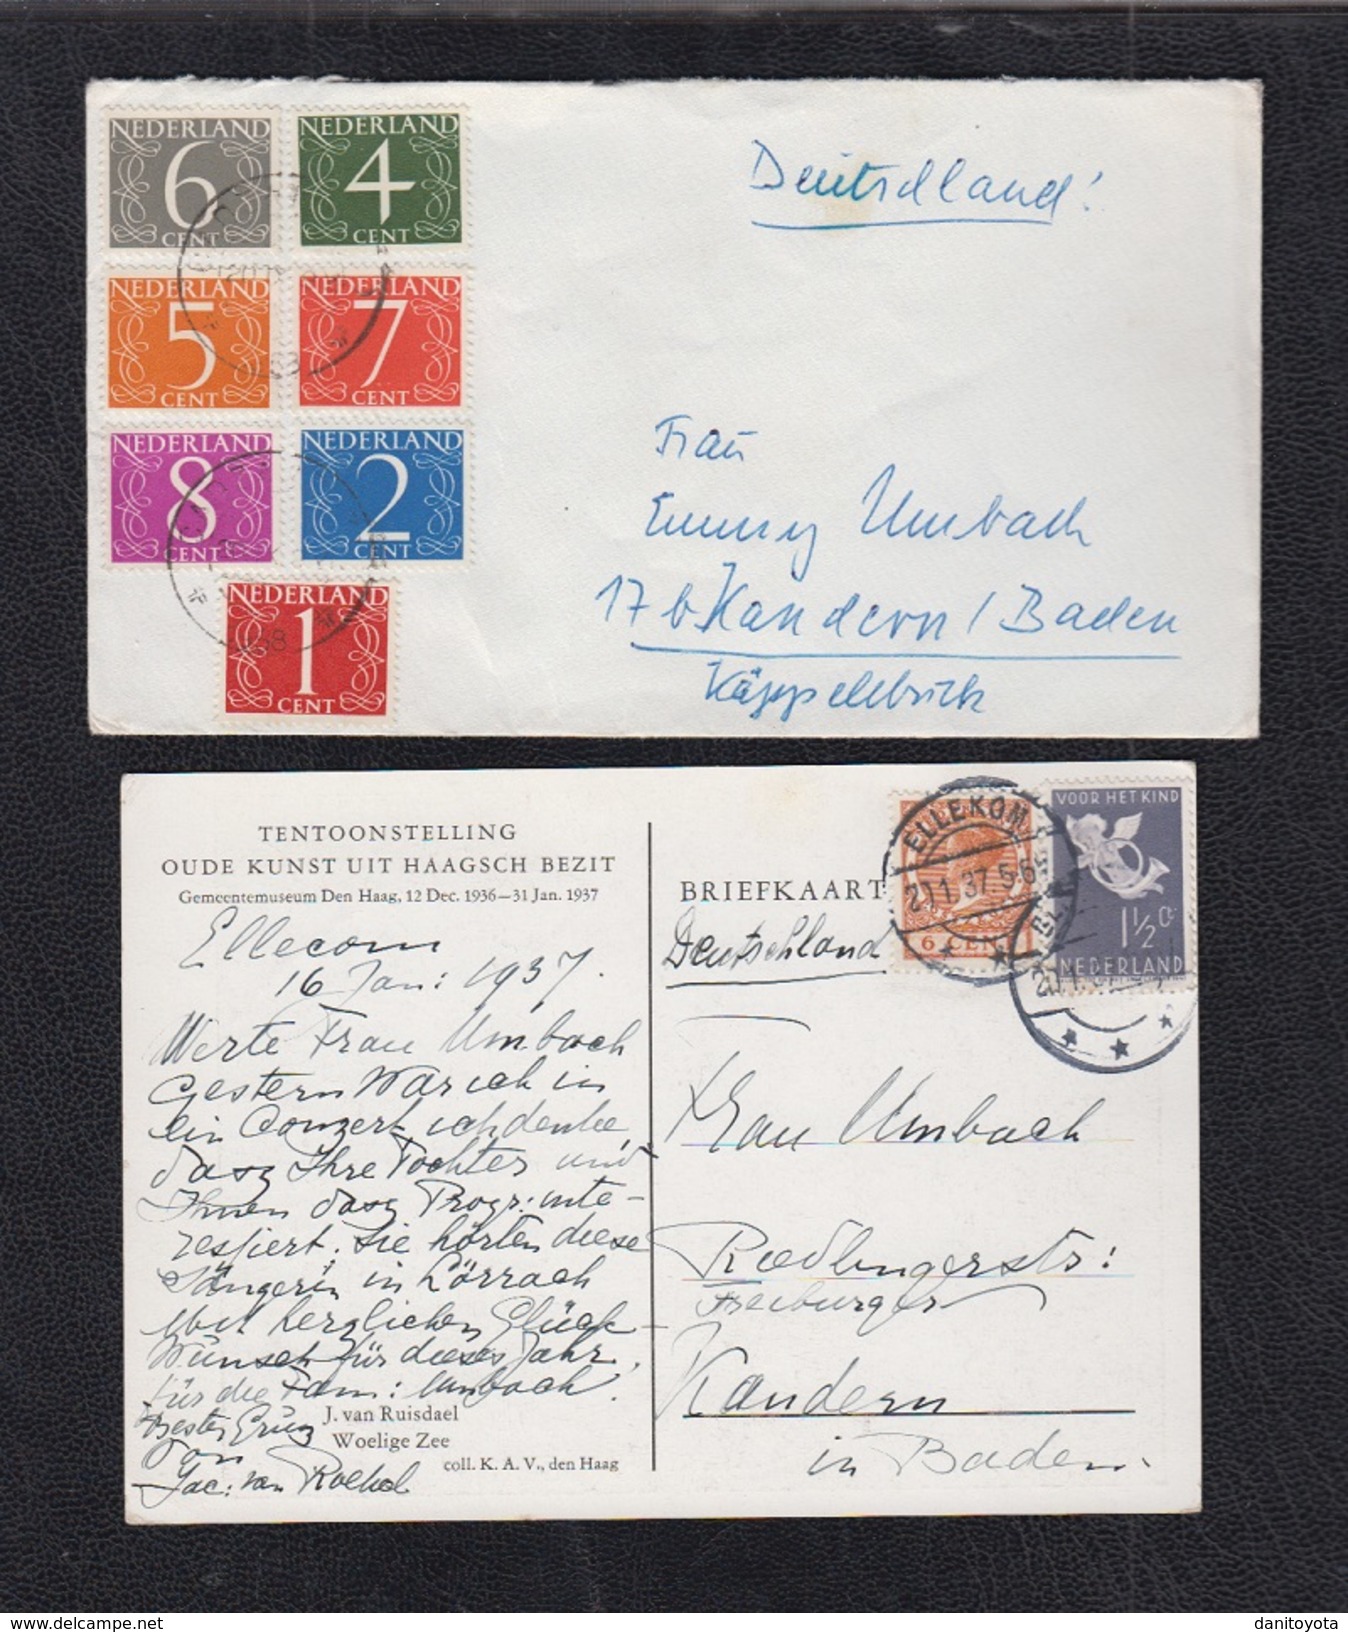 NEDERLAND
6
CENT
NEDERLAND
4
CENT
NEDERLAND
5
CENT
NEDERLAND
7
CENT
NEDERLAND
8
CENT
NEDERLAND
2
CENT
NEDERLAND
1
CENT
Deutschland!
Frau
Emmy Umbach
17b Kandern / Baden
TENTOONSTELLING
OUDE KUNST UIT HAAGSCH BEZIT
Gemeentemuseum Den Haag, 12 Dec. 1936—31 Jan. 1937
Ellecom
16 Jan: 1937.
Werte Frau Umbach
Gestern war ich in
ein Conzert, ich denke,
dasz Ihre Tochter und
Ihnen dasz Progr: inte-
ressiert. Sie hörten diese
Sängerin in Lörrach
Mit herzlichen Glück-
Wunsch für dieses Jahr,
für die Fam: Umbach.
Besten Grusz
van
Jac: van
J. van Ruisdael
Woelige Zee
coll. K. A. V., den Haag
BRIEFKAART
Deutschland
6 CENT
ELLEKOM
1.37 5-6
VOOR HET KIND
1½ ct
NEDERLAND
Frau Umbach
Freiburger
Kandern
in Baden.
danitoyota